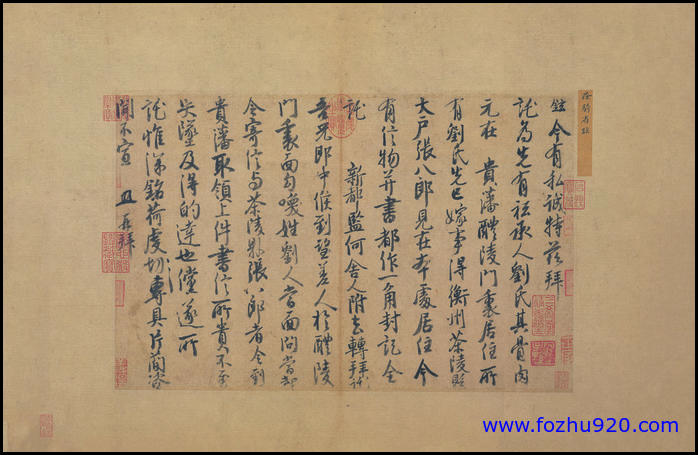 鉉今有私誠特茲拜
託為先有祗承人劉氏其骨肉
元在 貴藩醴陵門裏居住所
有劉氏先已嫁事得衡州茶陵縣
大戶張八郎見在本處居住今
有信物并書都作一角封記全
託 新都監何舍人附去轉拜託
吾兄郎中候到望差人於醴陵
門裏面勾喚姓劉人當面問當却
令寄信与茶陵縣張八郎者令到
貴藩取領上件書信所貴不至
失墜及得的達也儻遂所
託惟深銘荷虔切專具片簡咨
聞不宣 再拜
www.fozhu920.com